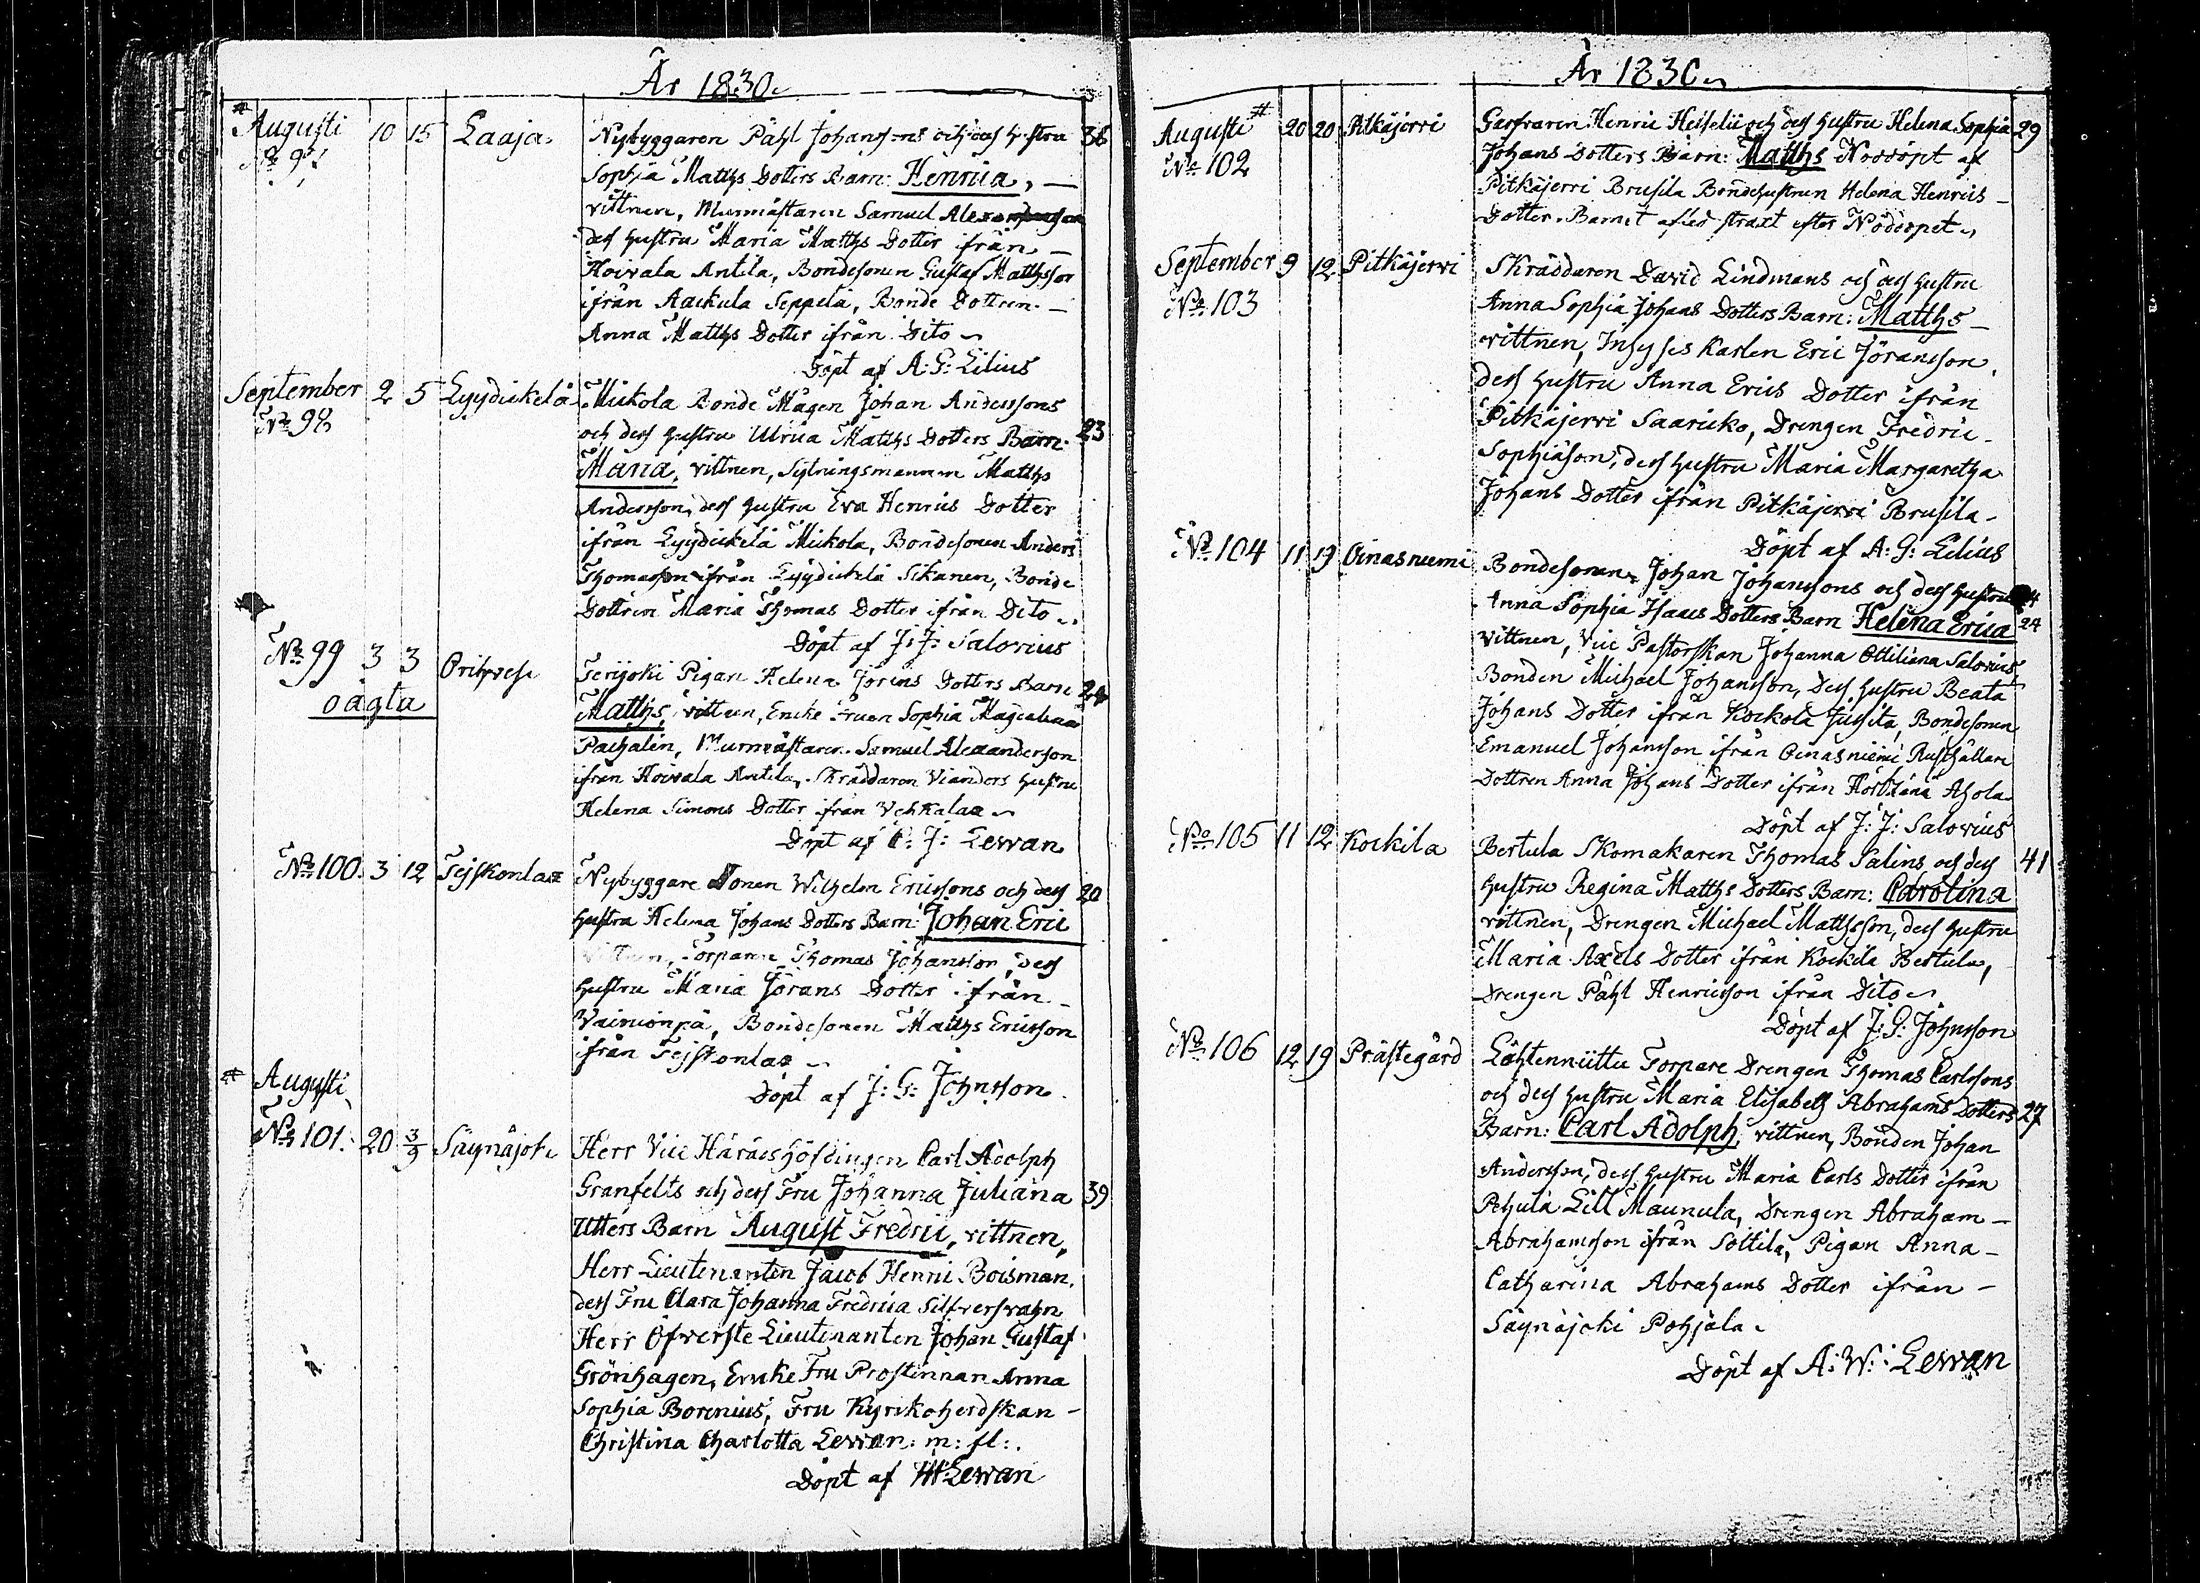 År 1830.
Augusti 10 15 Laaja. Nybyggaren Påhl Johanssons och des hustru 36
No 97 Sophia Matths Dotters Barn: Henrica, —
vittnen, Murmästaren Samuel Alexandersson
des hustru Maria Matths Dotter ifrån —
Hoivala Antila, Bondesonen Gustaf Mattsson
ifrån Kackula Seppelä, Bonde Dottren. —
Anna Matths Dotter ifrån Dito
Döpt af A: G: Lilius
September 2 5 Lyydickelä Mickola Bonde Mågen Johan Anderssons
No 98 och des hustru Ulrica Matths Dotters Barn. 23
Maria, vittnen, Sytningsmannen Matths
Andersson, des hustru Eva Henrics Dotter
ifrån Lyydickelä Mickola, Bondesonen Anders
Thomasson ifrån Lyydickelä Sikanen, Bonde
Dottren Maria Thomas Dotter ifrån Dito
Döpt af J: J: Salovius
No 99 3 3 Orihvesi Terijoki Pigan Helena Jörens Dotters Barn 24
oägta Matths, vittnen, Encke Fruen Sophia Magdalena
Pachalen, Murmästaren Samuel Alexanderson
ifrån Hoivala Antila, Skräddaren Vianders hustru
Helena Simons Dotter ifrån Vehkalax
Döpt af C: J: Lewan
No 100. 3 12 Tejskonlax Nybyggare Sonen Wilhelm Ericssons och des 20
hustru Helena Johans Dotters Barn: Johan Eric
vittnen, Torparen Thomas Johansson, des
hustru Maria Jörans Dotter ifrån —
Vainionpä, Bondesonen Matths Ericsson
ifrån Tejskonlax
Döpt af J: G: Johnsson.
Augusti
No 101. 20 3/9 Säynäjoki Herr Vice Häradshöfdingen Carl Adolph
Granfelts och des Fru Johanna Juliana 39
Utters Barn August Fredric, vittnen,
Herr Lieutenanten Jacob Henric Boisman,
des Fru Clara Johanna Fredrica Silfversvahn
Herr Öfverste Lieutenanten Johan Gustaf
Grönhagen, Encke Fru Prostinnan Anna
Sophia Borenius, Fru Kyrkoherdskan —
Christina Charlotta Lewan: m: fl:.
Döpt af Lewan
År 1830.
Augusti 20 20 Pitkäjervi Garfvaren Henric Heiselii och des hustru Helena Sophia 29
No 102 Johans Dotters Barn: Matths Nöddöpt af
Pitkäjervi Brusila Bondehustrun Helena Henrics —
Dotter. Barnet afled straxt efter Nöddopet.
September 9 12 Pitkäjervi Skräddaren David Lindmans och des hustru
No 103 Anna Sophia Johans Dotters Barn: Matths —
vittnen, Inhyses Karlen Eric Jöransson,
des hustru Anna Erics Dotter ifrån
Pitkäjervi Saaricko, Drengen Fredric —
Sophiason, des hustru Maria Margaretha
Johans Dotter ifrån Pitkäjervi Brusila —
Döpt af A: G: Lilius
No 104 11 19 Oinasniemi Bondesonen Johan Johanssons och des hustru
Anna Sophia Isacs Dotters Barn Helena Erica 24
vittnen, Vice Pastorskan Johanna Ottiliana Salovius,
Bonden Michael Johansson, Des hustru Beata
Johans Dotter ifrån Kockola Jussila, Bondesonen
Emanuel Johansson ifrån Oinasniemi Rusthållare
Dottren Anna Johans Dotter ifrån Ahola.
Döpt af J: J: Salovius
No 105 11 12 Kockila Bertula Skomakaren Thomas Salins och des 41
hustru Regina Matths Dotters Barn: Carolina
vittnen, Drengen Michael Matthsson, des hustru
Maria Axels Dotter ifrån Kockila Bertula,
Drengen Påhl Henricsson ifrån Dito
Döpt af J: G: Johnsson
No 106 12 19 Prästegård Lähtenniittu Torpare Drengen Thomas Carlssons
och des hustru Maria Elisabeth Abrahams Dotters 27
Barn: Carl Adolph, vittnen, Bonden Johan
Andersson, des hustru Maria Carls Dotter ifrån
Pehula Lill Maunula, Drengen Abraham —
Abrahamsson ifrån Sottila, Pigan Anna —
Catharina Abrahams Dotter ifrån —
Säynäjoki Pohjala.
Döpt af A: W: Lewan